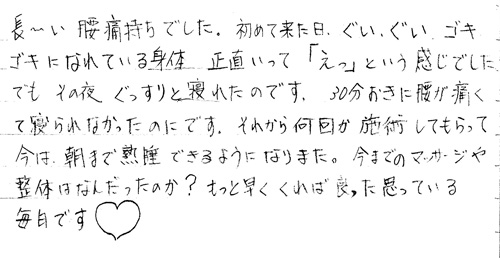 長〜い 腰痛持ちでした。初めて来た日、ぐい、ぐい ゴキ
ゴキになれている身体 正直いって「えっ」という感じでした
でも その夜 ぐっすりと寝れたのです。30分おきに腰が痛く
て寝られなかったのにです。それから何回か 施術してもらって
今は、朝まで熟睡できるようになりました。今までのマッサージや
整体はなんだったのか？もっと早くくれば良った思っている
毎日です♡